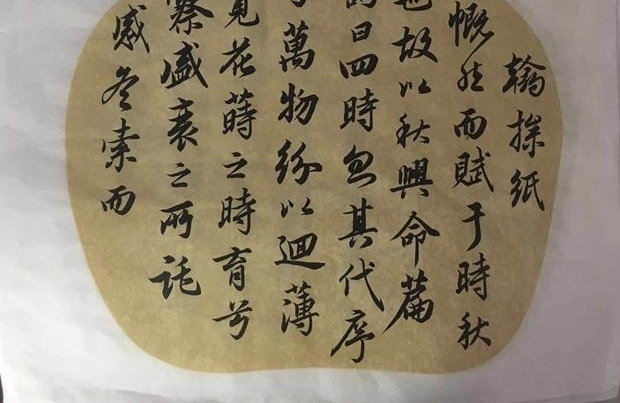 翰操紙
慨然而賦于時秋
也故以秋興命篇
曰四時忽其代序
萬物紛以迴薄
覽花蒔之時育兮
察盛衰之所託
感冬索而